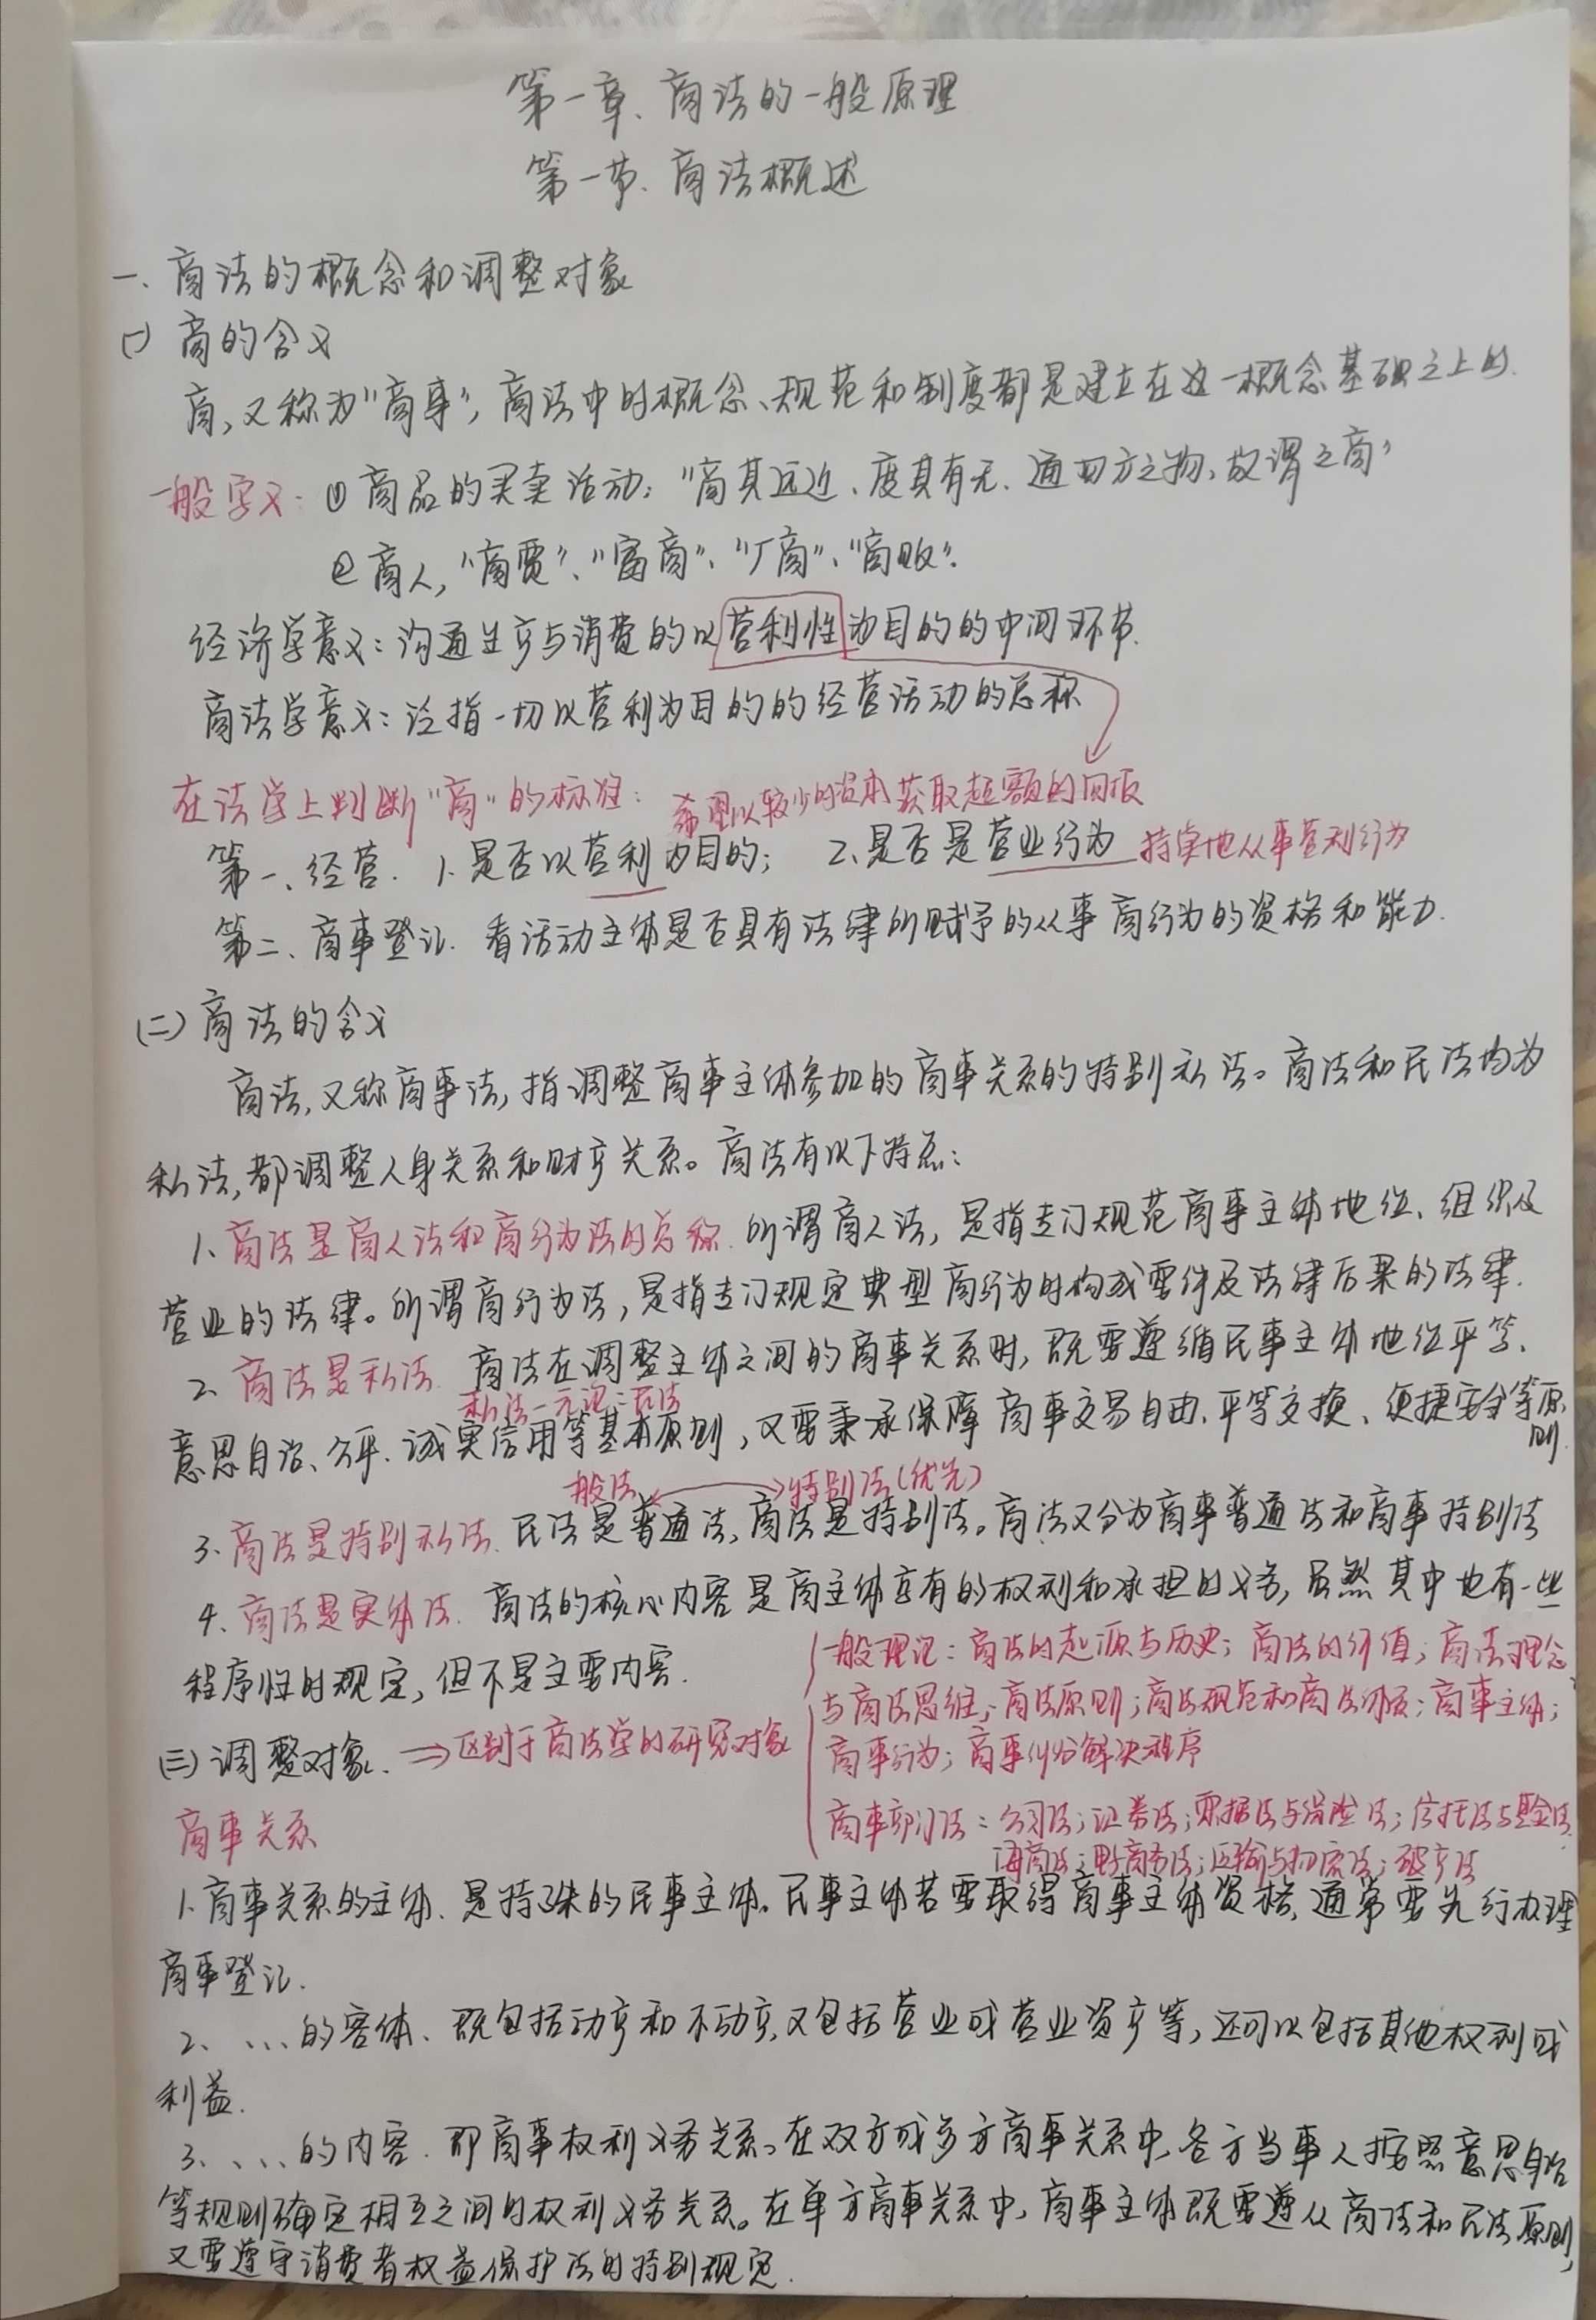 第一章、商法的一般原理
第一节、商法概述
一、商法的概念和调整对象
(一) 商的含义
商,又称为"商事",商法中的概念、规范和制度都是建立在这一概念基础之上的.
一般字义: ① 商品的买卖活动: "商其远近、度其有无、通四方之物,故谓之商"
② 商人,"商贾"、"富商"、"厂商"、"商贩".
经济学意义: 沟通生产与消费的以营利性为目的的中间环节.
商法学意义: 泛指一切以营利为目的的经营活动的总称
在法学上判断"商"的标准: 希望以较少的资本获取超额的回报
第一、经营. 1.是否以营利为目的; 2.是否是营业行为 持续地从事营利行为
第二、商事登记. 看活动主体是否具有法律所赋予的从事商行为的资格和能力.
(二) 商法的含义
商法,又称商事法,指调整商事主体参加的商事关系的特别私法。商法和民法均为
私法,都调整人身关系和财产关系。商法有以下特点:
1、商法是商人法和商行为法的总称. 所谓商人法,是指专门规范商事主体地位、组织及
营业的法律。所谓商行为法,是指专门规定典型商行为的构成要件及法律后果的法律.
2、商法是私法. 商法在调整主体之间的商事关系时,既要遵循民事主体地位平等、
私法一元论:民法
意思自治、公平、诚实信用等基本原则,又要秉承保障商事交易自由、平等交换、便捷安全等原则.
一般法 特别法(优先)
3、商法是特别私法. 民法是普通法,商法是特别法。商法又分为商事普通法和商事特别法
4、商法是实体法. 商法的核心内容是商主体享有的权利和承担的义务,虽然其中也有一些
程序性的规定,但不是主要内容.
一般理论: 商法的起源与历史; 商法的价值; 商法理念
与商法思维; 商法原则; 商法规范和商法体系; 商事主体;
(三) 调整对象. ⇒区别于商法学的研究对象
商事行为; 商事纠纷解决程序
商事关系
商事部门法: 公司法; 证券法; 票据法与保险法; 信托法与基金法
海商法; 电子商务法; 运输与物流法; 破产法
1、商事关系的主体、是特殊的民事主体。民事主体若要取得商事主体资格,通常要先行办理
商事登记.
2、....的客体、既包括动产和不动产,又包括营业或营业资产等,还可以包括其他权利或
利益.
3、....的内容. 即商事权利义务关系。在双方或多方商事关系中,各方当事人按照意思自治
等规则确定相互之间的权利义务关系。在单方商事关系中,商事主体既要遵从商法和民法原则,
又要遵守消费者权益保护法的特别规定.